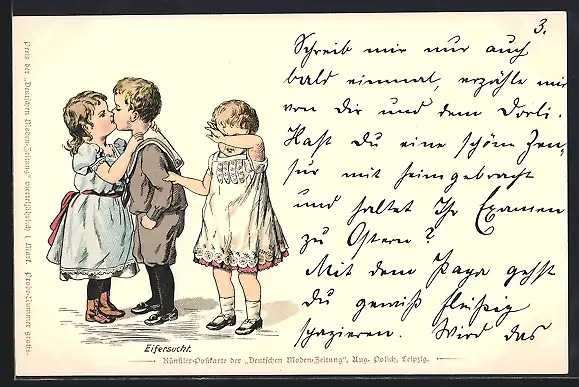 3.
Schreib mir nur auch
bald einmal, erzähle mir
von Dir und dem Dorli.
Hast Du eine schöne Zen-
sur mit heimgebracht
und haltet Ihr Examen
zu Ostern?
Mit dem Papa gehst
Du gewiß fleißig
spazieren. Wird das
Eifersucht.
Künstler-Postkarte der „Deutschen Moden-Zeitung“, Aug. Polich, Leipzig.
Preis der „Deutschen Moden-Zeitung“ vierteljährlich 1 Mark. Probe-Nummer gratis.